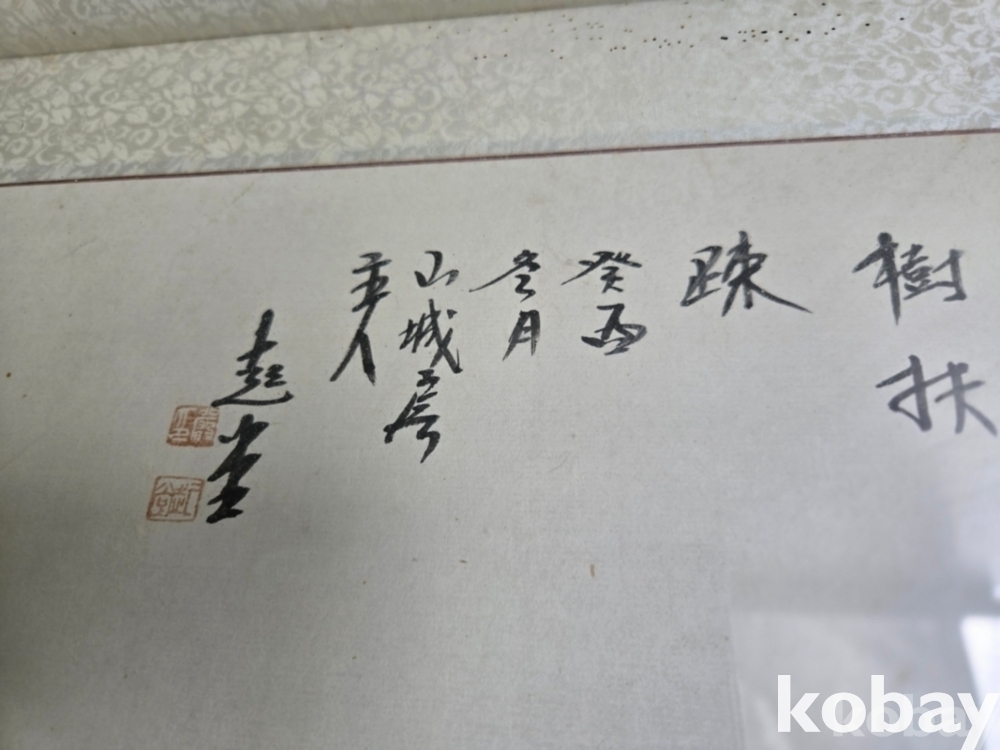 樹扶
踈
癸酉
冬月
山城
主人
堂
kobay